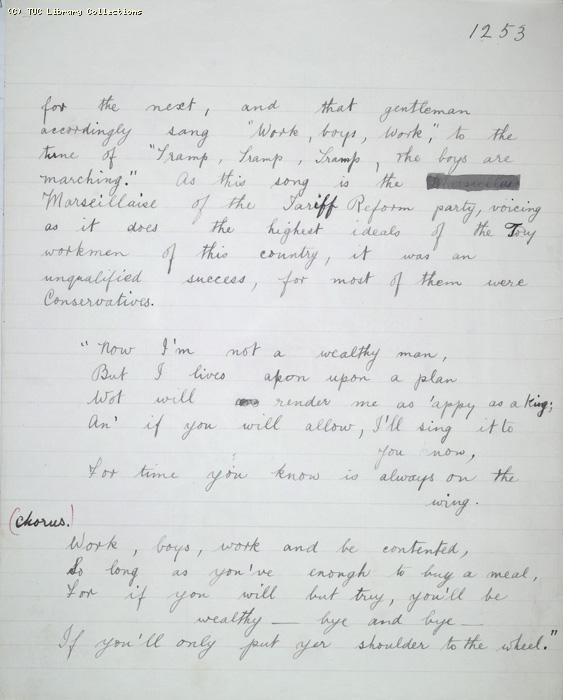 (C) TUC Library Collections
1253
for the next, and that gentleman
accordingly sang "Work, boys, Work", to the
tune of "Tramp, Tramp, Tramp, the boys are
marching." As this song is the
Marseillaise of the Tariff Reform party, voicing
as it does the highest ideals of the Tory
workmen of this country, it was an
unqualified success, for most of them were
Conservatives.
"Now I'm not a wealthy man,
But I lives apon upon a plan
Wot will render me as 'appy as a King;
An' if you will allow, I'll sing it to
you now,
For time you know is always on the
wing.
(Chorus.)
Work, boys, work and be contented,
So long as you've enough to buy a meal,
For if you will but try, you'll be
wealthy — bye and bye —
If you'll only put yer shoulder to the wheel."